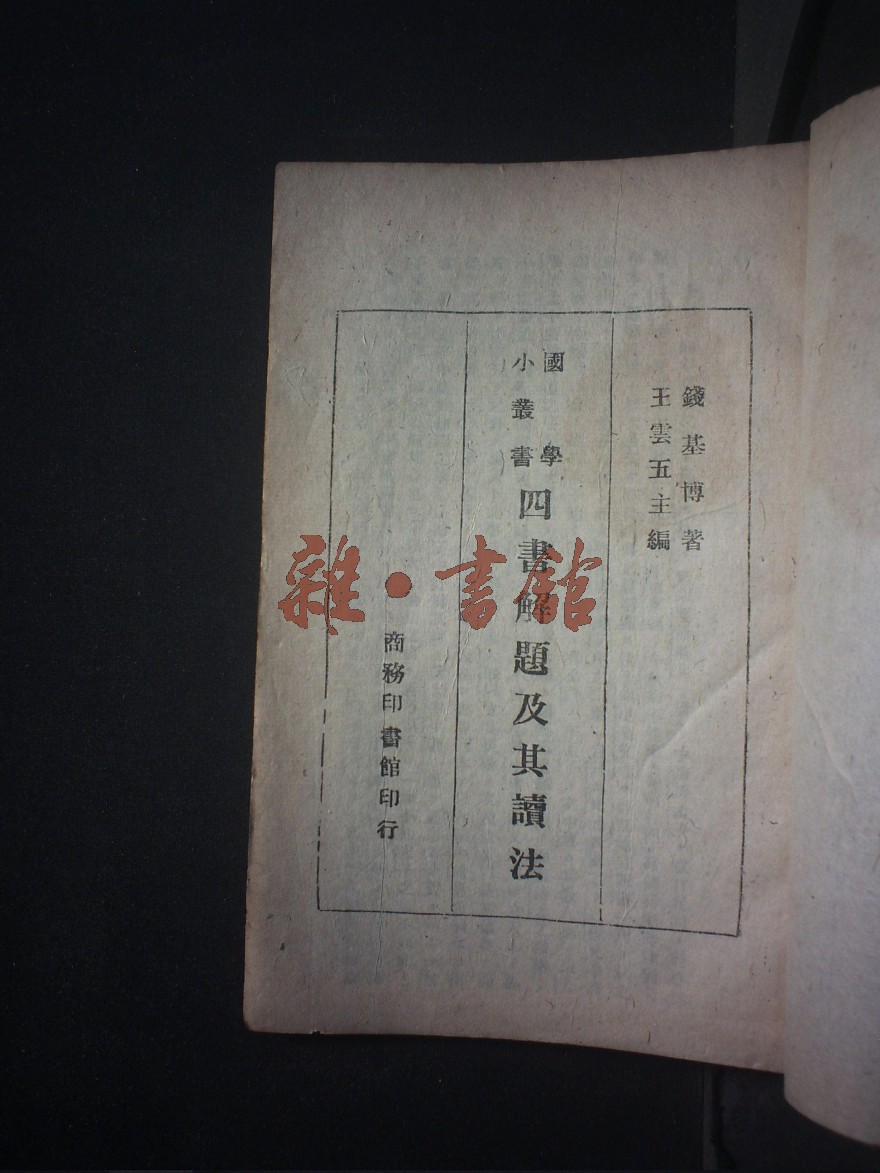 錢基博著
王雲五主編
國學
小叢書
四書解題及其讀法
商務印書館印行
雜·書館